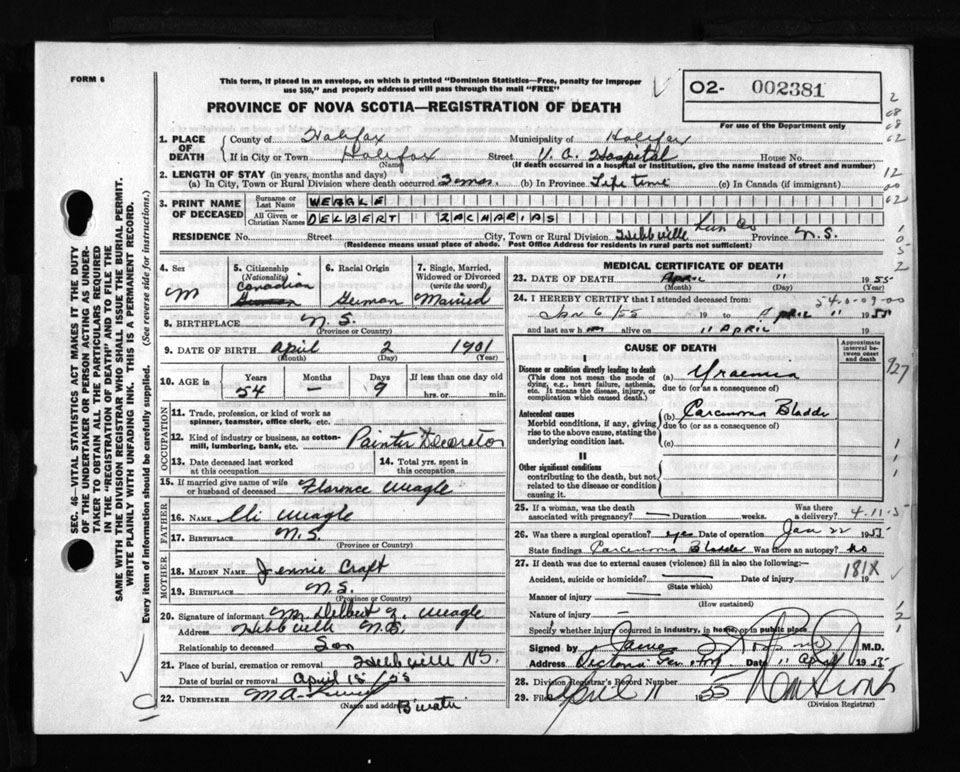 FORM 6
This form, if placed in an envelope, on which is printed "Dominion Statistics—Free, penalty for improper
use $50," and properly addressed will pass through the mail "FREE"
O2- 002381
For use of the Department only
PROVINCE OF NOVA SCOTIA—REGISTRATION OF DEATH
1. PLACE OF DEATH
County of Halifax Municipality of Halifax
If in City or Town Halifax Street V. G. Hospital House No.
(Name) (If death occurred in a hospital or institution, give the name instead of street and number)
2. LENGTH OF STAY (in years, months and days)
(a) In City, Town or Rural Division where death occurred 3 mos. (b) In Province Life time (c) In Canada (if immigrant)
3. PRINT NAME OF DECEASED
Surname or Last Name WEAGLE
All Given or Christian Names DELBERT ZACHARIAS
Lun Co
RESIDENCE No. Street City, Town or Rural Division Hebbville Province N.S.
(Residence means usual place of abode. Post Office Address for residents in rural parts not sufficient)
4. Sex M
5. Citizenship (Nationality) Canadian German
6. Racial Origin German
7. Single, Married, Widowed or Divorced (write the word) Married
8. BIRTHPLACE N.S.
(Province or Country)
9. DATE OF BIRTH April 2 1901
(Month) (Day) (Year)
10. AGE in Years 54 Months – Days 9 If less than one day old hrs. or min.
OCCUPATION
11. Trade, profession, or kind of work as spinner, teamster, office clerk, etc.
12. Kind of industry or business, as cotton-mill, lumbering, bank, etc. Painter Decorator
13. Date deceased last worked at this occupation
14. Total yrs. spent in this occupation
15. If married give name of wife or husband of deceased Florence Weagle
FATHER
16. NAME Eli Weagle
17. BIRTHPLACE N.S.
(Province or Country)
MOTHER
18. MAIDEN NAME Jennie Croft
19. BIRTHPLACE N.S.
(Province or Country)
20. Signature of informant Delbert Z. Weagle
Address Hebbville N.S.
Relationship to deceased Son
21. Place of burial, cremation or removal Hebbville NS.
Date of burial or removal April 13/55
22. UNDERTAKER
(Name and address)
MEDICAL CERTIFICATE OF DEATH
23. DATE OF DEATH April 11 1955
(Month) (Day)
24. I HEREBY CERTIFY that I attended deceased from: 540-09-00
Jan 6/55 19 to April 11 1955
and last saw him alive on 11 APRIL 19
CAUSE OF DEATH
Approximate interval between onset and death
Disease or condition directly leading to death (a) Uraemia
(This does not mean the mode of dying, e.g., heart failure, asthenia, etc. It means the disease, injury, or complication which caused death.)
due to (or as a consequence of)
Antecedent causes (b) Carcinoma Bladder
Morbid conditions, if any, giving rise to the above cause, stating the underlying condition last.
due to (or as a consequence of)
(c)
II
Other significant conditions
contributing to the death, but not related to the disease or condition causing it.
927
25. If a woman, was the death associated with pregnancy? Duration weeks. Was there a delivery? 4-11-5
26. Was there a surgical operation? yes Date of operation Jan 22 1955
State findings Carcinoma Bladder Was there an autopsy? No
27. If death was due to external causes (violence) fill in also the following:
Accident, suicide or homicide? Date of injury 19
(State which)
181X
Manner of injury
(How sustained)
Nature of injury
Specify whether injury occurred in industry, in home, or in public place
Signed by James M.D.
Address Victoria Gen Hosp Date 11 April 1955
28. Division Registrar's Record Number
29. Filed April 11 1955
(Division Registrar)
SEC. 46—VITAL STATISTICS ACT MAKES IT THE DUTY
OF THE UNDERTAKER OR PERSON ACTING AS UNDER-
TAKER TO OBTAIN ALL THE PARTICULARS REQUIRED
IN THE "REGISTRATION OF DEATH" AND TO FILE THE
SAME WITH THE DIVISION REGISTRAR WHO SHALL ISSUE THE BURIAL PERMIT.
WRITE PLAINLY WITH UNFADING INK. THIS IS A PERMANENT RECORD.
Every item of information should be carefully supplied. (See reverse side for instructions.)